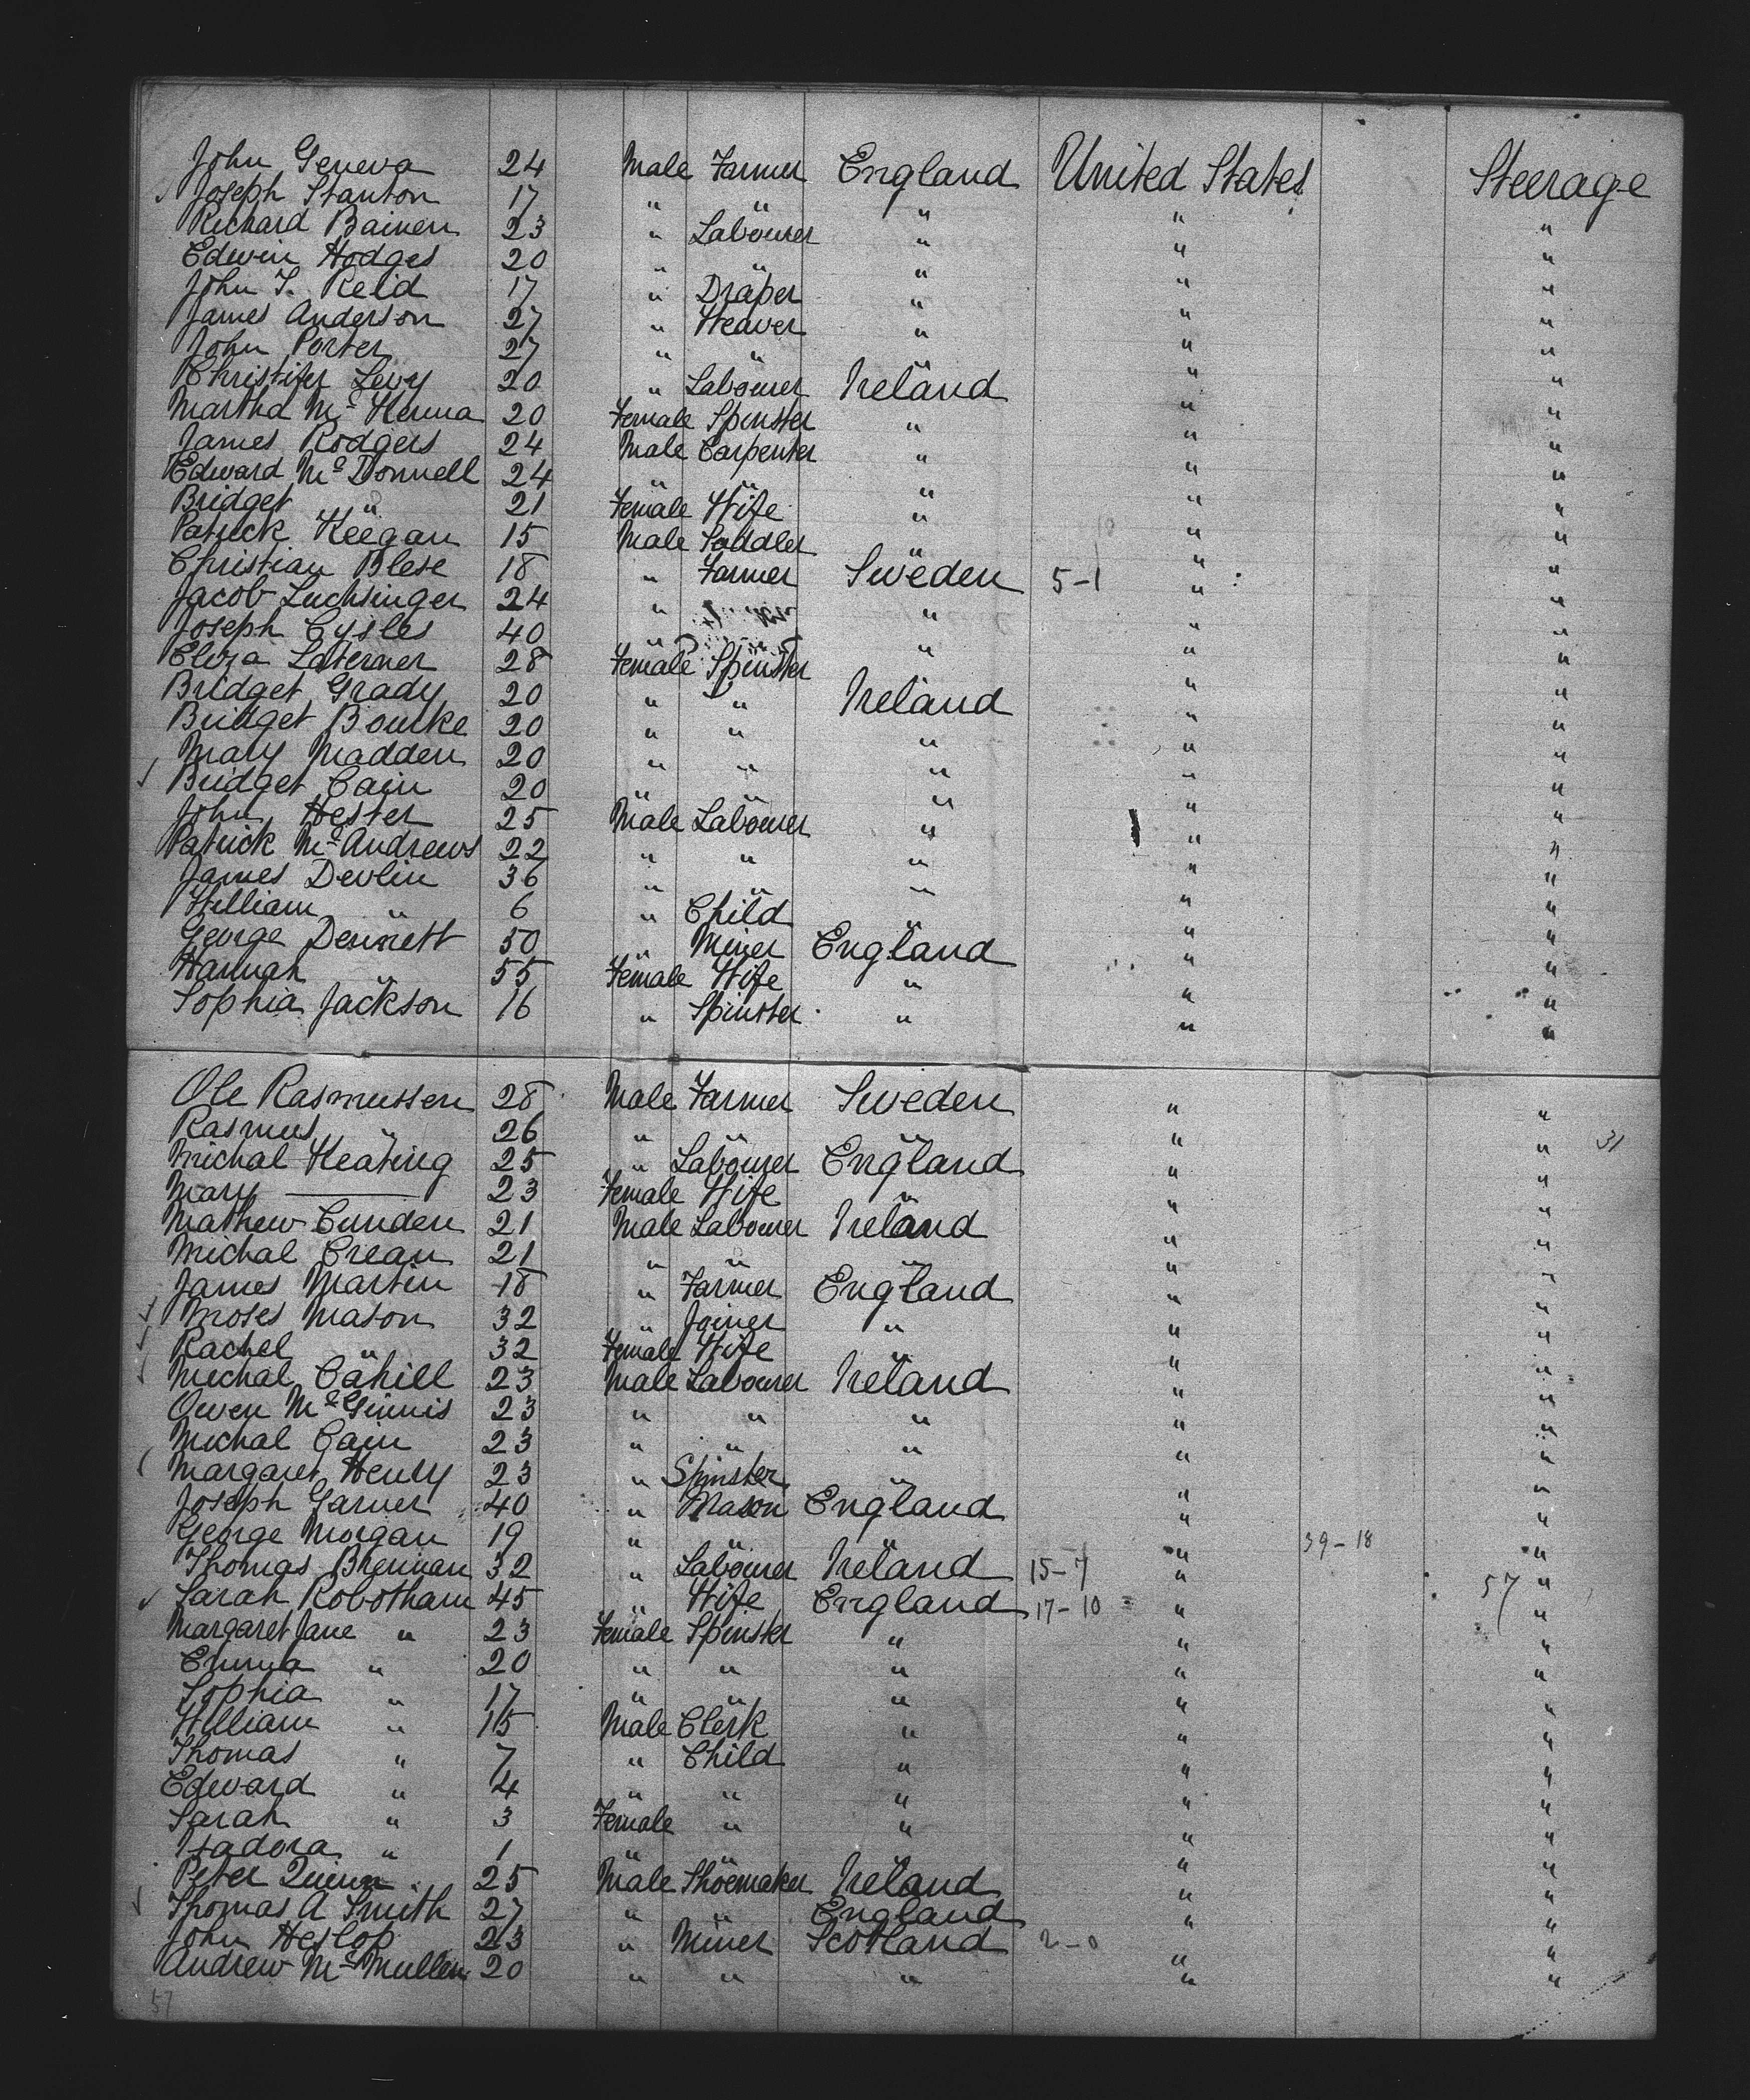 John Geneva 24 Male Farmer England United States Steerage
Joseph Stanton 17 " " " " "
Richard Bainen 23 " Labourer " " "
Edwin Hodges 20 " " " " "
John T. Reid 17 " Draper " " "
James Anderson 27 " Weaver " " "
John Porter 27 " " " " "
Christifer Levy 20 " Labourer Ireland " "
Martha Mc Kenna 20 Female Spinster " " "
James Rodgers 24 Male Carpenter " " "
Edward Mc Donnell 24 " " " " "
Bridget " 21 Female Wife " " "
Patrick Keegan 15 Male Saddler " " "
Christian Blese 18 " Farmer Sweden 5-1 " "
Jacob Luchsinger 24 " " " "
Joseph Cysles 40 " " " "
Eliza Laterner 28 Female Spinster " " "
Bridget Grady 20 " " Ireland " "
Bridget Bourke 20 " " " " "
Mary Madden 20 " " " " "
Bridget Cain 20 " " " " "
John Hester 25 Male Labourer " " "
Patrick Mc Andrews 22 " " " " "
James Devlin 36 " " " " "
William " 6 " Child " " "
George Dennett 50 " Miner England " "
Hannah " 55 Female Wife " " "
Sophia Jackson 16 " Spinster " " "
Ole Rasmussen 28 Male Farmer Sweden " "
Rasmus " 26 " " " " " 31
Michal Keating 25 " Labourer England " "
Mary —— 23 Female Wife " " "
Mathew Cunden 21 Male Labourer Ireland " "
Michal Crean 21 " " " " "
James Martin 18 " Farmer England " "
Moses Mason 32 " Joiner " " "
Rachel " 32 Female Wife " " "
Michal Cahill 23 Male Labourer Ireland " "
Owen Mc Ginnis 23 " " " " "
Michal Cain 23 " " " " "
Margaret Henry 23 " Spinster " " "
Joseph Garner 40 " Mason England " "
George Morgan 19 " " " " 39-18 "
Thomas Brennan 32 " Labourer Ireland 15-7 " "
Sarah Robotham 45 " Wife England 17-10 " 57 "
Margaret Jane " 23 Female Spinster " " "
Emma " 20 " " " " "
Sophia " 17 " " " " "
William " 15 Male Clerk " " "
Thomas " 7 " Child " " "
Edward " 4 " " " " "
Sarah " 3 Female " " " "
Isadora " 1 " " " " "
Peter Quinn 25 Male Shoemaker Ireland " "
Thomas A Smith 27 " " England " "
John Heslop 23 " Miner Scotland 2-0 " "
Andrew Mc Mullen 20 " " " " "
57